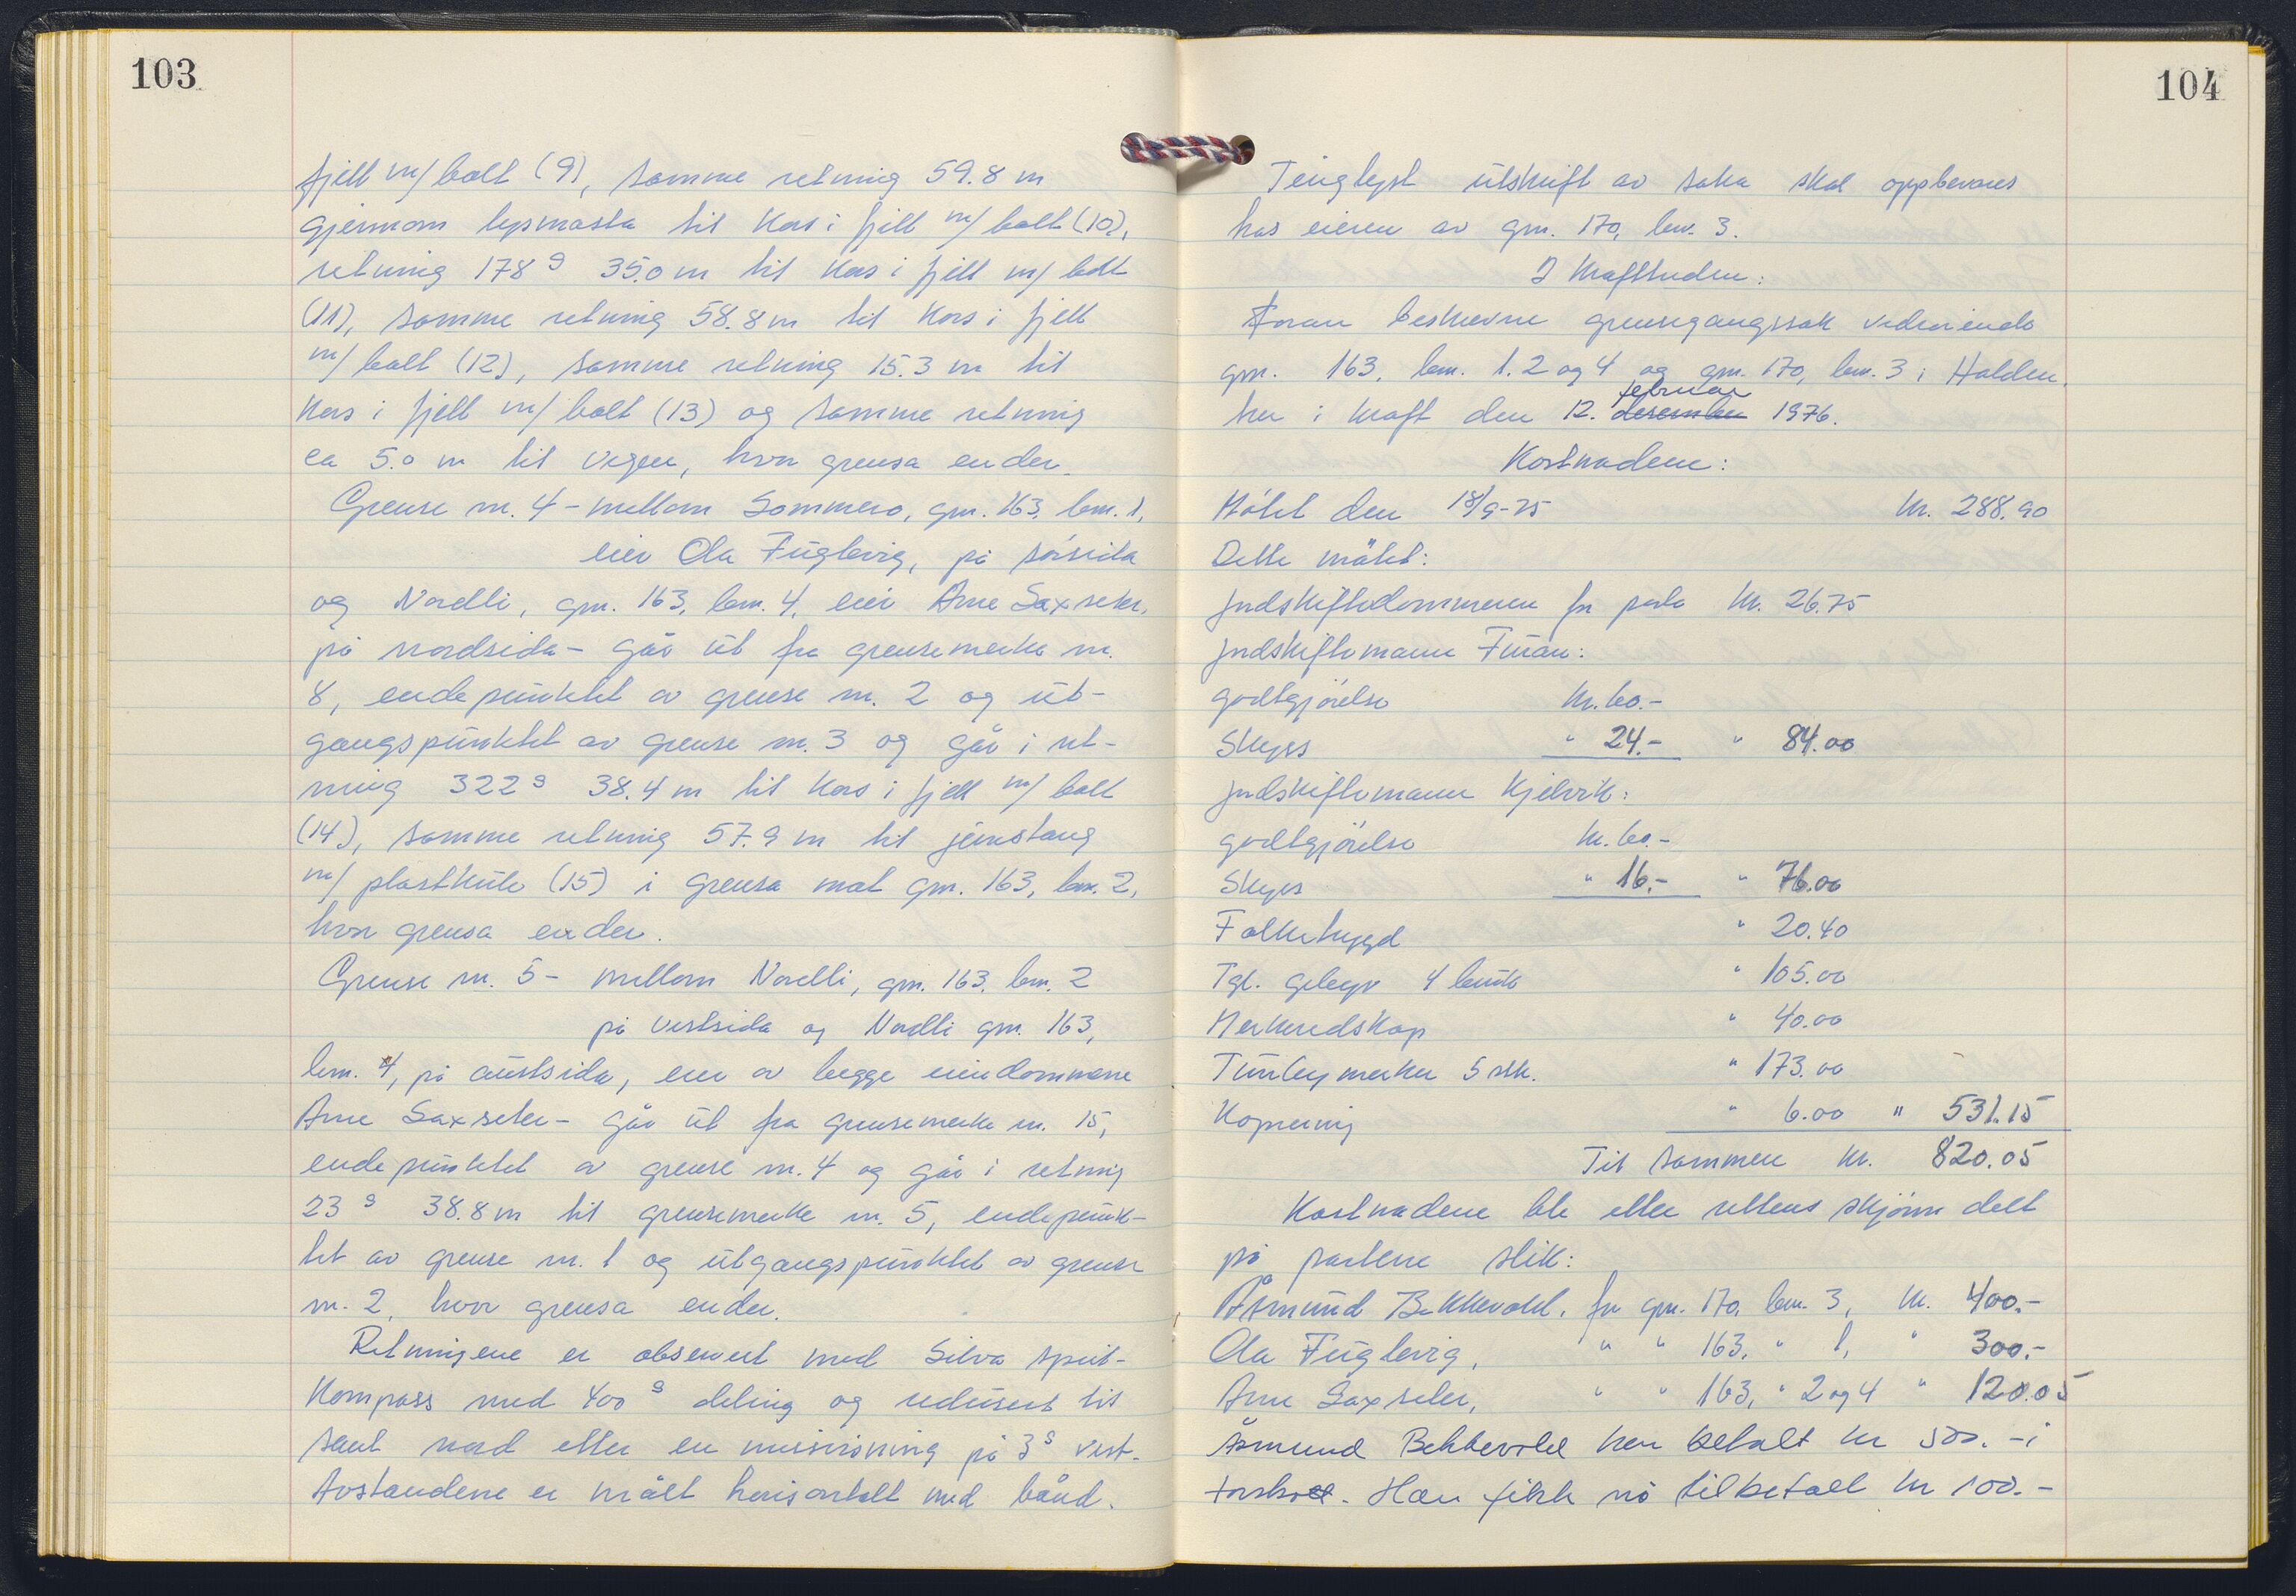 103
fjell m/bolt (9), samme retning 59.8 m
gjennom lysmasta til kors i fjell m/bolt (10),
retning 178 g 35.0 m til kors i fjell m/bolt
(11), samme retning 58.8 m til kors i fjell
m/bolt (12), samme retning 15.3 m til
kors i fjell m/bolt (13) og samme retning
ca 5.0 m til vegen, hvor grensa ender.
Grense nr. 4 - mellom Sommero, gnr. 163, bnr. 1,
eier Ola Fuglevig, på sørsida
og Nordli, gnr. 163, bnr. 4, eier Arne Sæxseter,
på nordsida - går ut fra grensemerke nr.
8, endepunktet av grense nr. 2 og ut-
gangspunktet av grense nr. 3 og går i ret-
ning 322 g 38.4 m til kors i fjell m/bolt
(14), samme retning 57.9 m til jernstang
m/plastkule (15) i grensa mot gnr. 163, bnr. 2,
hvor grensa ender.
Grense nr. 5 - mellom Nordli, gnr. 163, bnr. 2
på vestsida og Nordli gnr. 163,
bnr. 4, på austsida, eier av begge eiendommene
Arne Saxseter - går ut fra grensemerke nr. 15,
endepunktet av grense nr. 4 og går i retning
23 g 38.8 m til grensemerke nr. 5, endepunk-
tet av grense nr. 1 og utgangspunktet av grense
nr. 2, hvor grensa ender.
Retningene er observert med Silva speil-
kompass med 400 g deling og redusert til
sant nord etter en misvisning på 3 g vest.
Avstandene er målt horisontalt med bånd.
104
Tinglyst utskrift av saka skal oppbevares
hos eieren av gnr. 170, bnr. 3.
I krafttreden:
Foran beskrevne grensegangssak vedrørende
gnr. 163, bnr. 1, 2 og 4 og gnr. 170, bnr. 3 i Halden,
februar
trer i kraft den 12. desember 1976.
Kostnadene:
Møtet den 18/9-75 kr. 288.90
Dette møtet:
Jordskiftedommeren før porto kr. 26.75
Jordskiftemann Furan:
godtgjørelse kr. 60.-
Skyss " 24.- " 84.00
Jordskiftemann Kjelvik:
godtgjørelse kr. 60.-
Skyss " 16.- " 76.00
Folketrygd " 20.40
Tgl. gebyr 4 bruk " 105.00
Merkeredskap " 40.00
Merker 5 stk. " 173.00
Kopiering " 6.00 " 531.15
Til sammen kr. 820.05
Kostnadene ble etter rettens skjønn delt
på partene slik:
Åsmund Bekkevold, for gnr. 170, bnr. 3, kr. 400.-
Ola Fuglevig, " " 163, " 1, " 300.-
Arne Saxseter, " " 163, " 2 og 4 " 120.05
Åsmund Bekkevold har betalt kr 500.- i
forskott. Han fikk nå tilbetalt kr 100.-